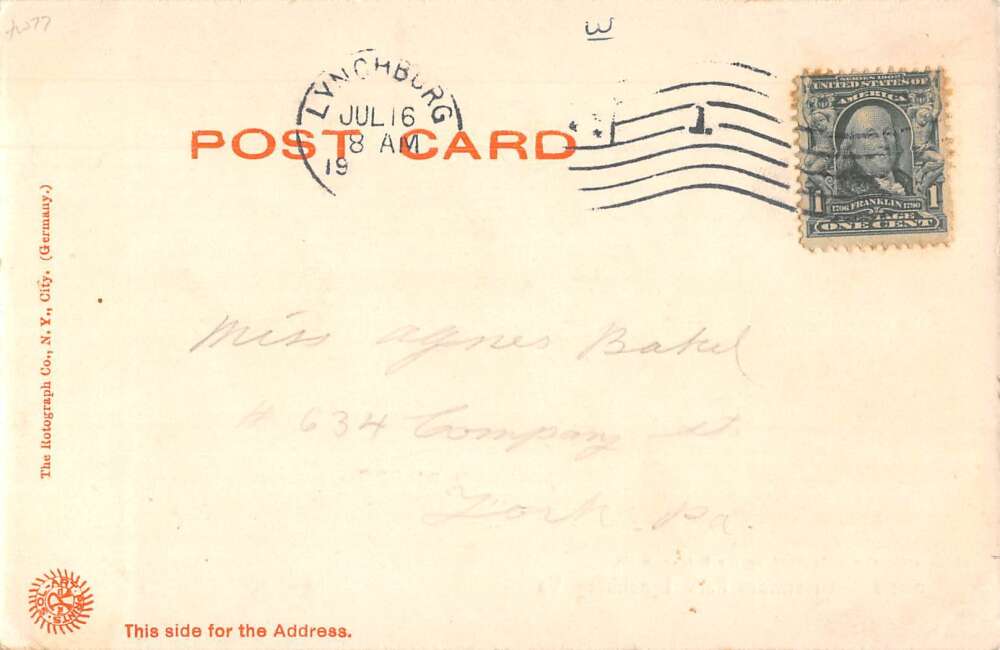 W
LYNCHBURG
JUL 16
8 AM
19
1
SERIES 1902
UNITED STATES OF
AMERICA
1 1706 FRANKLIN 1790 1
ONE CENT
POST CARD
The Rotograph Co., N. Y., City. (Germany.)
Miss Agnes Bakel
# 634 Company st
York Pa.
SOL-ART PRINTS
This side for the Address.